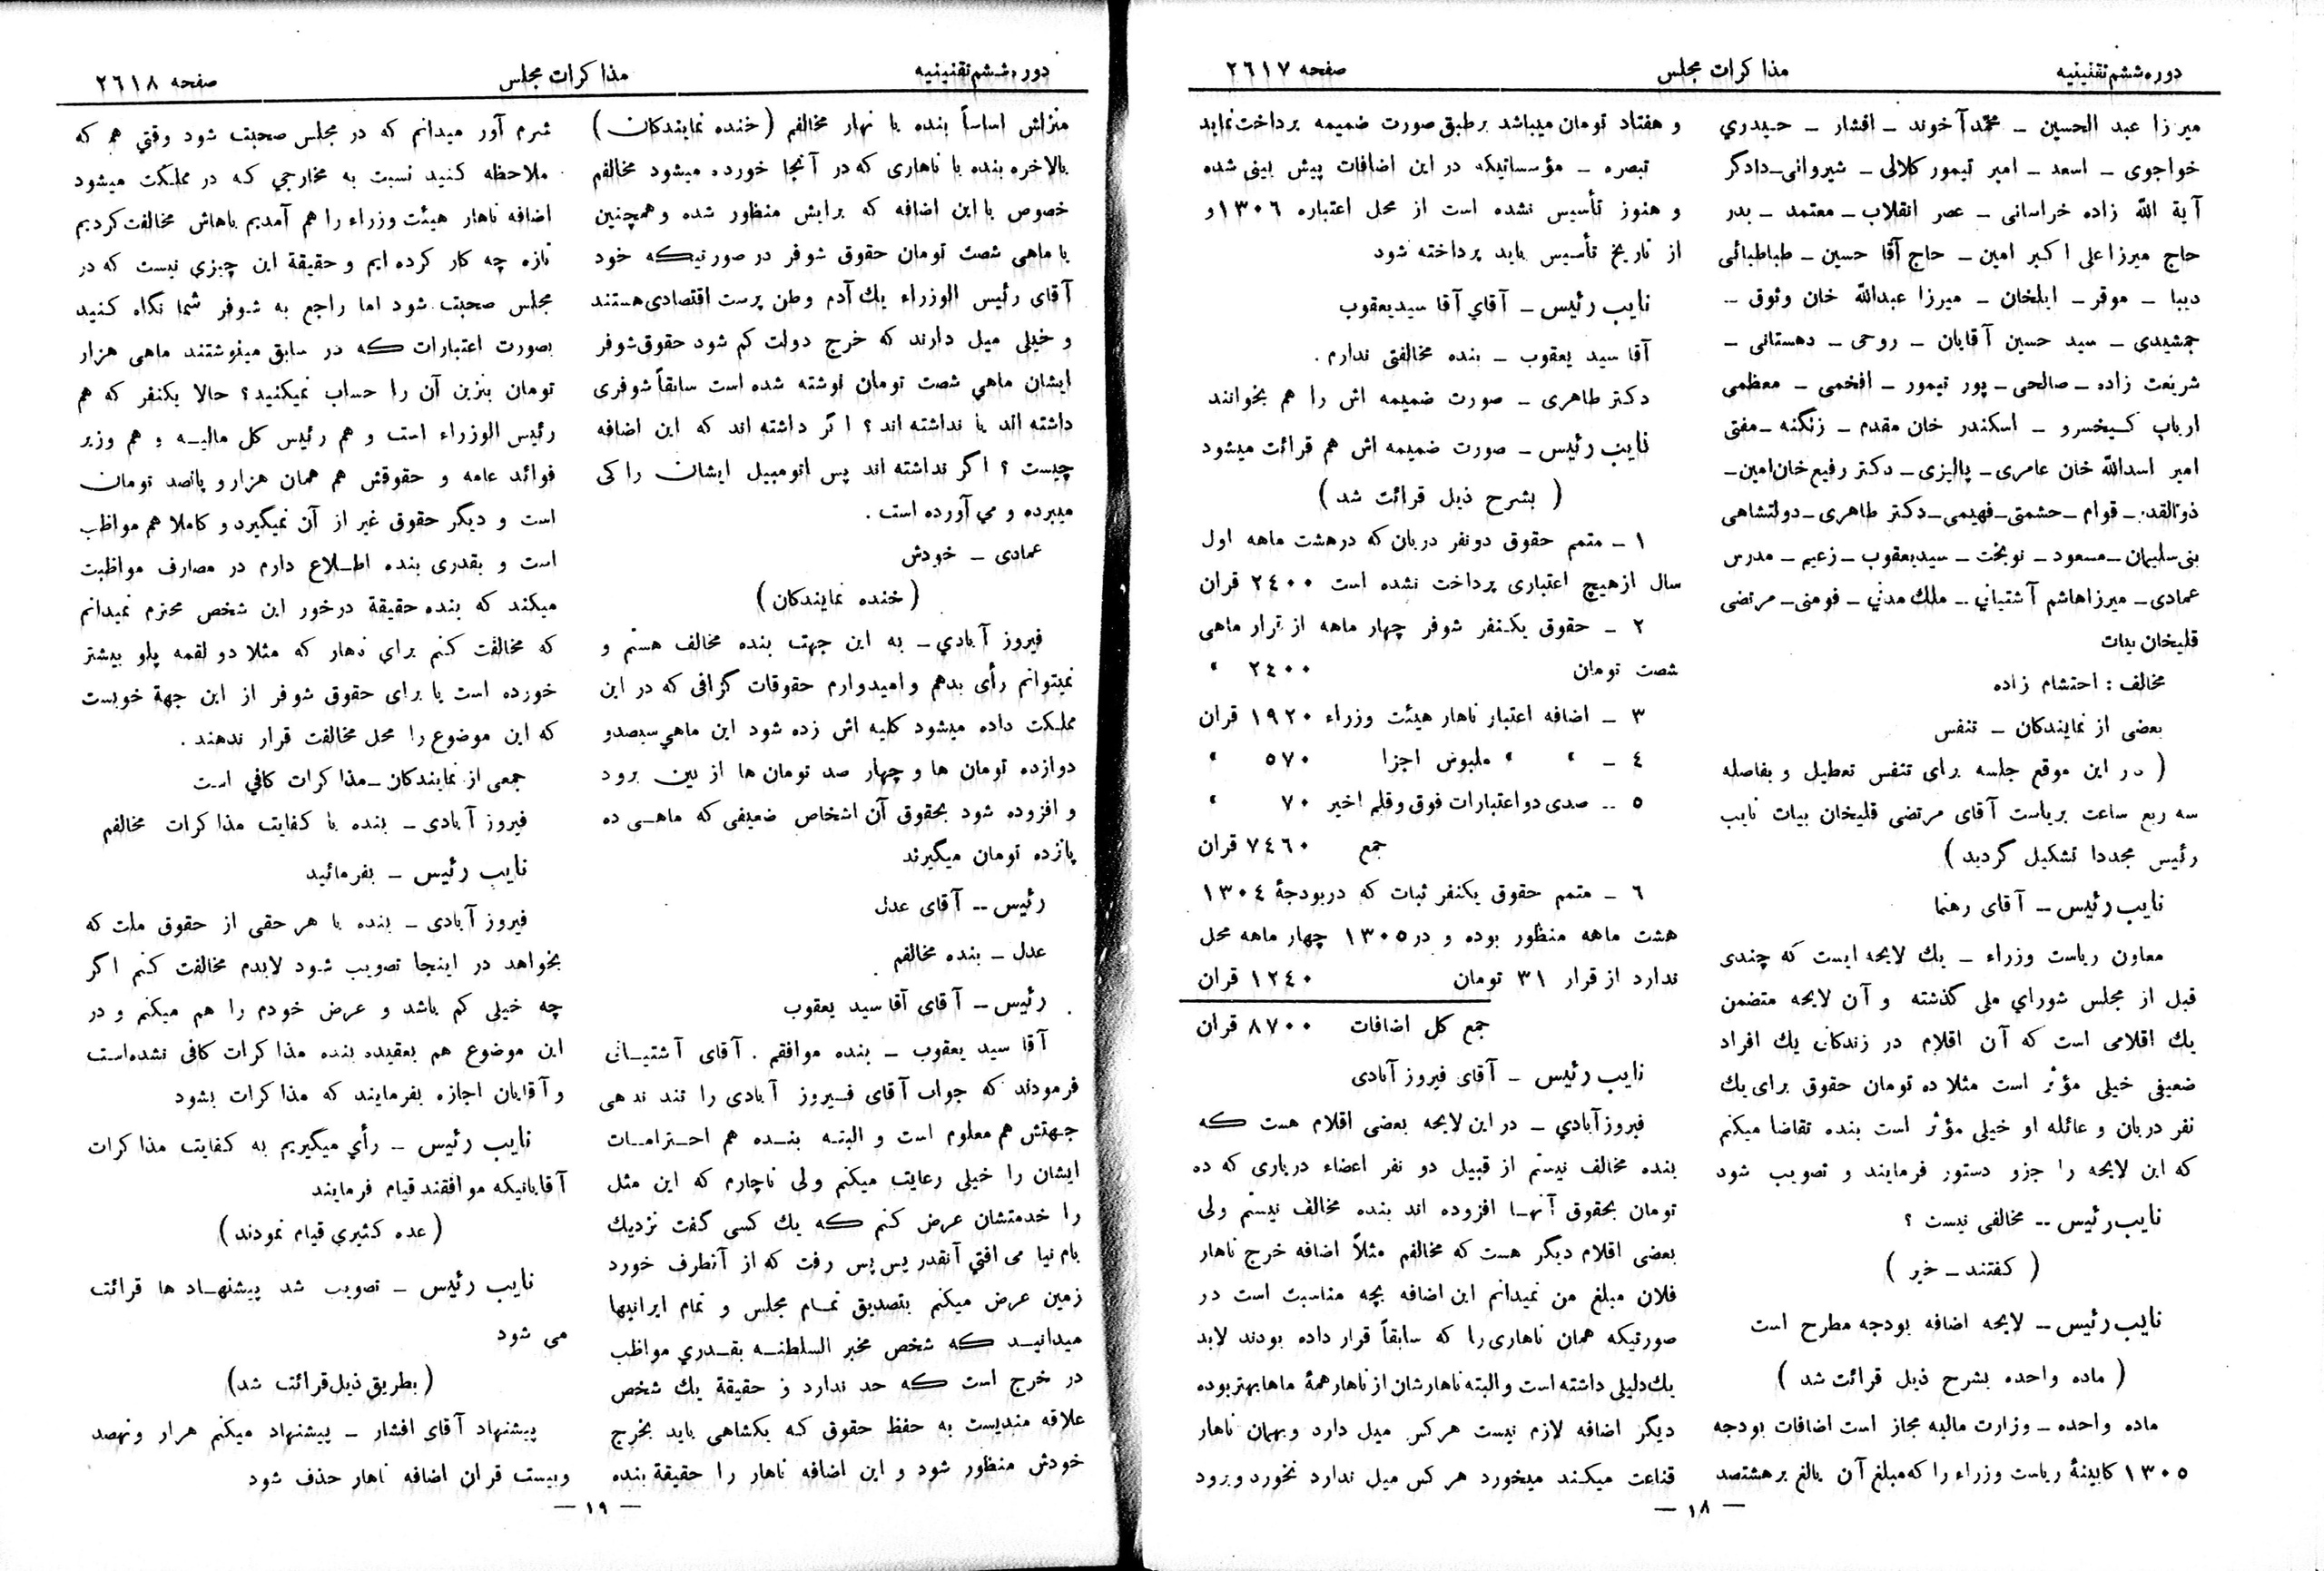 دوره ششم تقنینیه
مذاکرات مجلس
صفحه ۲٦۱۷
میرزا عبد الحسین ــ محمد آخوند ــ افشار ــ حیدری
خواجوی ــ اسعد ــ امیر تیمور کلالی ــ شیروانی ــ دادگر
آیة الله زاده خراسانی ــ عصر انقلاب ــ معتمد ــ بدر
حاج میرزا علی اکبر امین ــ حاج آقا حسین ــ طباطبائی
دیبا ــ موقر ــ ایلخان ــ میرزا عبدالله خان وثوق ــ
جمشیدی ــ سید حسین آقایان ــ روحی ــ دهستانی ــ
شریعت زاده ــ صالحی ــ پور تیمور ــ افخمی ــ معظمی
ارباب کیخسرو ــ اسکندر خان مقدم ــ زنگنه ــ مفتی
امیر اسدالله خان عامری ــ پالیزی ــ دکتر رفیع خان امین ــ
ذوالقدر ــ قوام ــ حشمتی ــ فهیمی ــ دکتر طاهری ــ دولتشاهی
بنی سلیمان ــ مسعود ــ نوبخت ــ سیدیعقوب ــ زعیم ــ مدرس
عمادی ــ میرزا هاشم آشتیانی ــ ملك مدنی ــ فومنی ــ مرتضی
قلیخان بیات
مخالف : احتشام زاده
بعضی از نمایندگان ــ تنفس
( در این موقع جلسه برای تنفس تعطیل و بفاصله
سه ربع ساعت بریاست آقای مرتضی قلیخان بیات نایب
رئیس مجددا تشکیل گردید )
نایب رئیس ــ آقای رهنما
معاون ریاست وزراء ــ یك لایحه ایست که چندی
قبل از مجلس شورای ملی گذشته و آن لایحه متضمن
یك اقلامی است که آن اقلام در زندگانی یك افراد
ضعیفی خیلی مؤثر است مثلا ده تومان حقوق برای یك
نفر دربان و عائله او خیلی مؤثر است بنده تقاضا میکنم
که این لایحه را جزو دستور فرمایند و تصویب شود
نایب رئیس ــ مخالفی نیست ؟
( گفتند ــ خیر )
نایب رئیس ــ لایحه اضافه بودجه مطرح است
( ماده واحده بشرح ذیل قرائت شد )
ماده واحده ــ وزارت مالیه مجاز است اضافات بودجه
۱۳۰۵ کابینهٔ ریاست وزراء را که مبلغ آن بالغ بر هشتصد
و هفتاد تومان میباشد بر طبق صورت ضمیمه پرداخت نماید
تبصره ــ مؤسساتیکه در این اضافات پیش بینی شده
و هنوز تأسیس نشده است از محل اعتباره ۱۳۰٦ و
از تاریخ تأسیس باید پرداخته شود
نایب رئیس ــ آقای آقا سیدیعقوب
آقا سید یعقوب ــ بنده مخالفتی ندارم .
دکتر طاهری ــ صورت ضمیمه اش را هم بخوانند
نایب رئیس ــ صورت ضمیمه اش هم قرائت میشود
( بشرح ذیل قرائت شد )
۱ ــ متمم حقوق دونفر دربان که در هشت ماهه اول
سال از هیچ اعتباری پرداخت نشده است ۲٤۰۰ قران
۲ ــ حقوق یکنفر شوفر چهار ماهه از قرار ماهی
شصت تومان ۲٤۰۰ »
۳ ــ اضافه اعتبار ناهار هیئت وزراء ۱۹۲۰ قران
٤ ــ » » ملبوس اجزا ۵۷۰ »
۵ ــ صدی دو اعتبارات فوق و قلم اخیر ۷۰ »
جمع ۷٤٦۰ قران
٦ ــ متمم حقوق یکنفر ثبات که در بودجهٔ ۱۳۰٤
هشت ماهه منظور بوده و در ۱۳۰۵ چهار ماهه محل
ندارد از قرار ۳۱ تومان ۱۲٤۰ قران
جمع کل اضافات ۸۷۰۰ قران
نایب رئیس ــ آقای فیروز آبادی
فیروزآبادی ــ در این لایحه بعضی اقلام هست که
بنده مخالف نیستم از قبیل دو نفر اعضاء درباری که ده
تومان بحقوق آنها افزوده اند بنده مخالف نیستم ولی
بعضی اقلام دیگر هست که مخالفم مثلاً اضافه خرج ناهار
فلان مبلغ من نمیدانم این اضافه بچه مناسبت است در
صورتیکه همان ناهاری را که سابقاً قرار داده بودند لابد
یك دلیلی داشته است و البته ناهارشان از ناهار همهٔ ماها بهتر بوده
دیگر اضافه لازم نیست هر کس میل دارد و بهمان ناهار
قناعت میکند میخورد هر کس میل ندارد نخورد و برود
ــ ۱۸ ــ
دوره ششم تقنینیه
مذاکرات مجلس
صفحه ۲٦۱۸
منزلش اساساً بنده با نهار مخالفم ( خنده نمایندگان )
بالاخره بنده با ناهاری که در آنجا خورده میشود مخالفم
خصوص با این اضافه که برایش منظور شده و همچنین
با ماهی شصت تومان حقوق شوفر در صورتیکه خود
آقای رئیس الوزراء یك آدم وطن پرست اقتصادی هستند
و خیلی میل دارند که خرج دولت کم شود حقوق شوفر
ایشان ماهی شصت تومان نوشته شده است سابقاً شوفری
داشته اند یا نداشته اند ؟ اگر داشته اند که این اضافه
چیست ؟ اگر نداشته اند پس اتومبیل ایشان را کی
میبرده و می آورده است .
عمادی ــ خودش
( خنده نمایندگان )
فیروز آبادی ــ به این جهت بنده مخالف هستم و
نمیتوانم رأی بدهم و امیدوارم حقوقات گزافی که در این
مملکت داده میشود کلیه اش زده شود این ماهی سیصدو
دوازده تومان ها و چهار صد تومان ها از بین برود
و افزوده شود بحقوق آن اشخاص ضعیفی که ماهی ده
پانزده تومان میگیرند
رئیس ــ آقای عدل
عدل ــ بنده مخالفم
رئیس ــ آقای آقا سید یعقوب
آقا سید یعقوب ــ بنده موافقم . آقای آشتیانی
فرمودند که جواب آقای فیروز آبادی را تند ندهی
جهتش هم معلوم است و البته بنده هم احترامات
ایشان را خیلی رعایت میکنم ولی ناچارم که این مثل
را خدمتشان عرض کنم که یك کسی گفت نزدیك
بام نیا می افتی آنقدر پس پس رفت که از آنطرف خورد
زمین عرض میکنم بتصدیق تمام مجلس و تمام ایرانیها
میدانید که شخص مخبر السلطنه بقدری مواظب
در خرج است که حد ندارد و حقیقة یك شخص
علاقه مندیست به حفظ حقوق که یکشاهی باید بخرج
خودش منظور شود و این اضافه ناهار را حقیقة بنده
شرم آور میدانم که در مجلس صحبت شود وقتی هم که
ملاحظه کنید نسبت به مخارجی که در مملکت میشود
اضافه ناهار هیئت وزراء را هم آمدیم باهاش مخالفت کردیم
تازه چه کار کرده ایم و حقیقة این چیزی نیست که در
مجلس صحبت شود اما راجع به شوفر شما نگاه کنید
بصورت اعتبارات که در سابق مینوشتند ماهی هزار
تومان بنزین آن را حساب نمیکنید ؟ حالا یکنفر که هم
رئیس الوزراء است و هم رئیس کل مالیه و هم وزیر
فوائد عامه و حقوقش هم همان هزار و پانصد تومان
است و دیگر حقوق غیر از آن نمیگیرد و کاملا هم مواظب
است و بقدری بنده اطلاع دارم در مصارف مواظبت
میکند که بنده حقیقة در خور این شخص محترم نمیدانم
که مخالفت کنم برای نهار که مثلا دو لقمه پلو بیشتر
خورده است یا برای حقوق شوفر از این جهة خوبست
که این موضوع را محل مخالفت قرار ندهند .
جمعی از نمایندگان ــ مذاکرات کافی است
فیروز آبادی ــ بنده با کفایت مذاکرات مخالفم
نایب رئیس ــ بفرمائید
فیروز آبادی ــ بنده با هر حقی از حقوق ملت که
بخواهد در اینجا تصویب شود لابدم مخالفت کنم اگر
چه خیلی کم باشد و عرض خودم را هم میکنم و در
این موضوع هم بعقیده بنده مذاکرات کافی نشده است
و آقایان اجازه بفرمایند که مذاکرات بشود
نایب رئیس ــ رأی میگیریم به کفایت مذاکرات
آقایانیکه موافقند قیام فرمایند
( عده کثیری قیام نمودند )
نایب رئیس ــ تصویب شد پیشنهاد ها قرائت
می شود
( بطریق ذیل قرائت شد )
پیشنهاد آقای افشار ــ پیشنهاد میکنم هزار و نهصد
و بیست قران اضافه ناهار حذف شود
ــ ۱۹ ــ